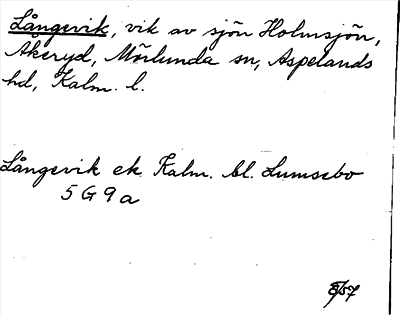 Långevik, vik av sjön Holmsjön,
Åkeryd, Mörlunda sn, Aspelands
hd, Kalm. l.
Långsvik ek. Kalm. bl. Lumsebo
5 G 9 a
8/57